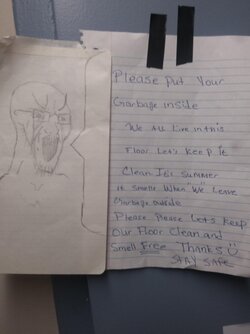 Please Put Your
Garbage inside
We All Live in this
Floor Let's keep it
Clean It's Summer
it smells when "we" Leave
Garbage outside
Please Please Let's keep
Our Floor Clean and
Smell Free Thanks
STAY SAFE